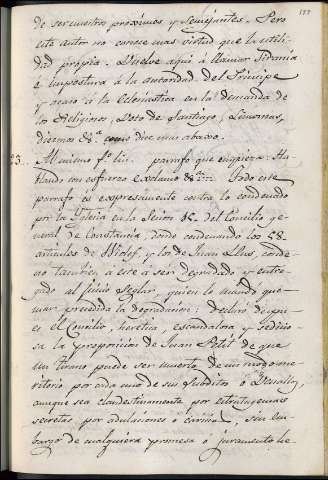 de ser nuestros proximos y semejantes. Pero
este autor no conoce mas virtud que la utili-
dad propia. Vuelve aqui á llamar tirania
é impostura á la autoridad del Principe
y acaso á la Eclesiastica en la demanda de
los Religiosos, Voto de Santiago, Limosnas,
diezmos &.ª como dice mas abaxo.
23. Al mismo f.º lin. parrafo que empieza: Ha-
blando con esfuerzo exclamo &.: Todo este
parrafo es expresamente contra lo condenado
por la Iglesia en la Sesion 15. del Concilio ge-
neral de Constancia, donde condenando los 58.
articulos de Wiclef, y los de Juan Hus, conde-
no tambien á este á ser degradado y entre-
gado al juicio seglar, quien lo mandó que-
mar, precedida la degradacion: declaro despu-
es el Concilio, heretica, escandalosa y sedicio-
sa la proposicion de Juan Petit de que
un tirano puede ser muerto, de un modo me-
ritorio por cada uno de sus subditos ó Vasallos,
aunque sea clandestinamente por estratagemas
secretas por adulaciones ó cariños, sin em-
bargo de cualquiera promesa ó juramento he-